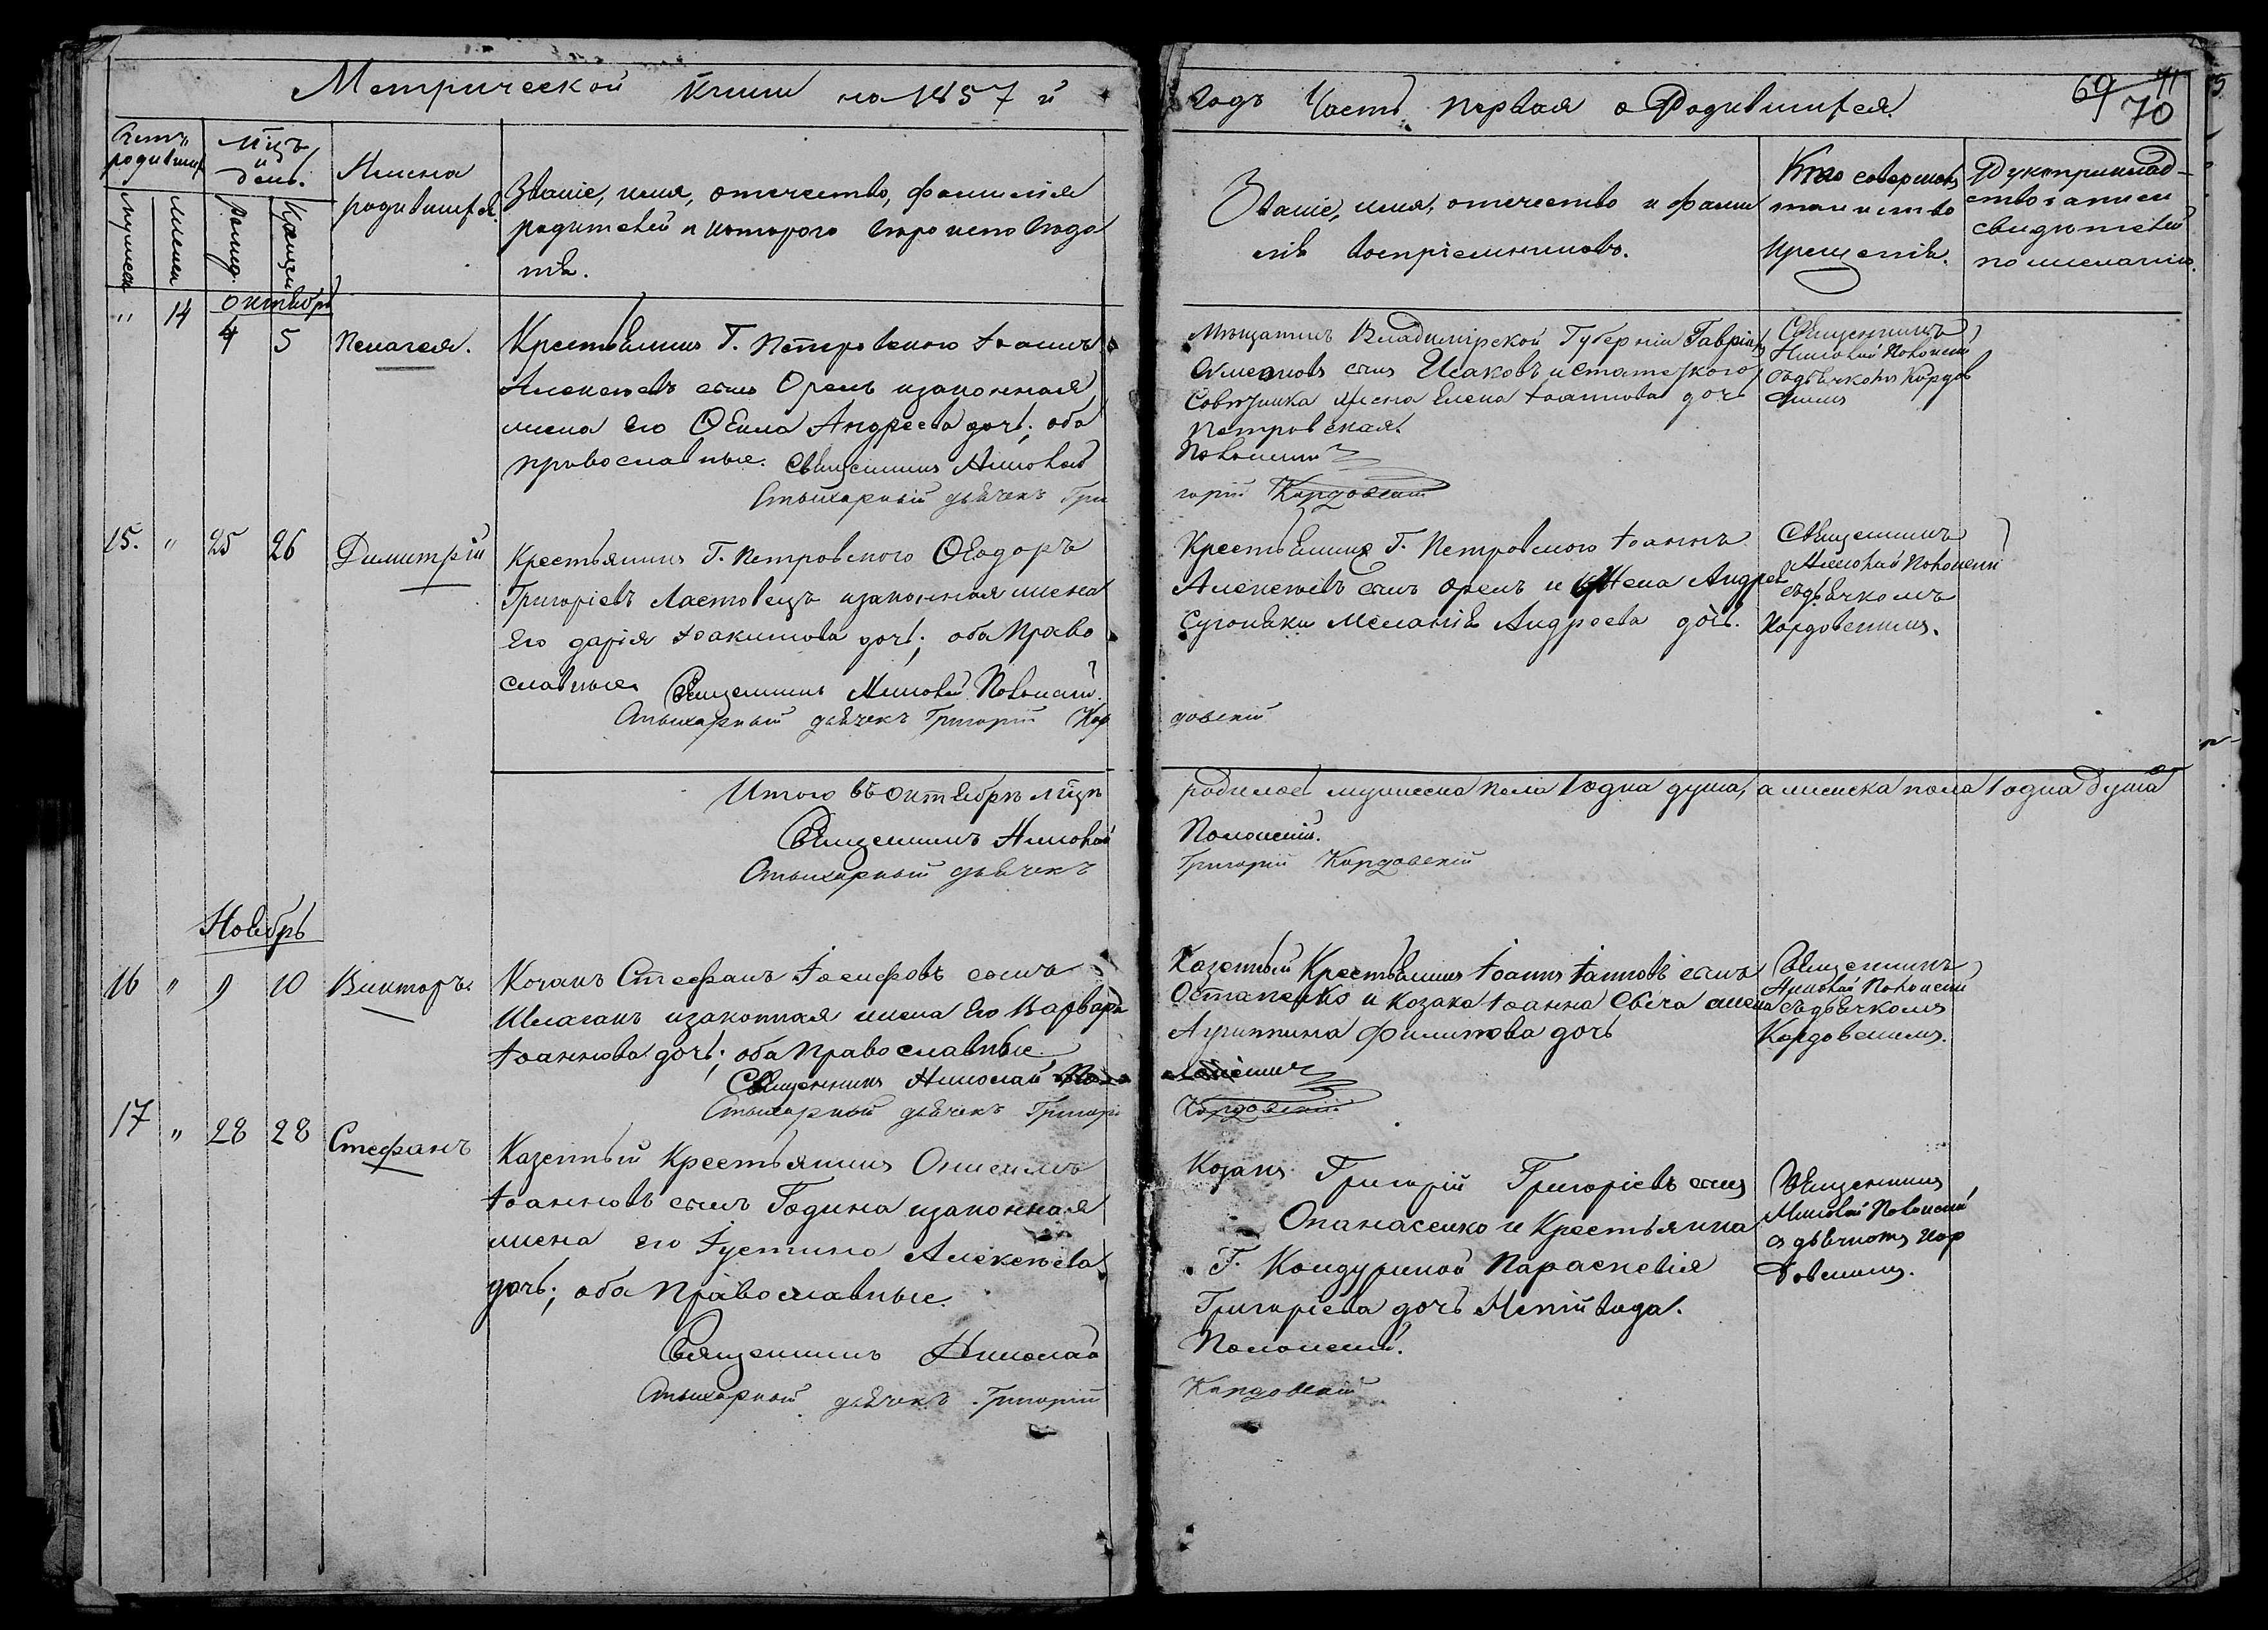 Метрической книги на 1857 й
годъ Часть первая о Родившихся.
69 71
70
Счетъ родившихся
Мѣцъ и день.
Имена родившихся.
Званіе, имя, отечество, фамилія
родителей и которого вѣроисповѣда
нія.
мужеска
женска
рожд.
Крещен
Званіе, имя, отечество и фами
лія воспріемниковъ.
Кто совершалъ
таинство
крещенія.
Рукоприклад-
ство записи
свидѣтелей
по желанію.
Октябрь
" 14 4 5 Пелагея.
Крестьянинъ Г. Петровского Іоаннъ
Алексѣевъ сынъ Орелъ и законная
жена его Ѳекла Андреева дочь; оба
православные. Священникъ Николай
Стыхарный дьячекъ Гри
Мѣщанинъ Владимірской Губерніи Гавріилъ
сынъ Исаковъ и статского
Совѣтника жена Елена Іоаннова дочь
Петровская.
Полонскій
горій Кордовскій
Священникъ
Николай Полонскій
съ дьячкомъ Кордов
скимъ
15. " 25 26 Димитрій
Крестьянинъ Г. Петровского Ѳеодоръ
Григоріевъ Ластовецъ и законная жена
Его Дарія Іоакимова дочь; оба Право
славные. Священникъ Николай Полонскій.
Стыхарный дьячекъ Григорій Кор
Крестьянинъ Г. Петровского Іоаннъ
Алексѣевъ сынъ Орелъ и Жена Андрея
Сугоняки Меланія Андреева дочь.
довскій
Священникъ
Николай Полонскій
съ дьячкомъ
Кордовскимъ.
Итого въ Октябрѣ мѣцѣ
родилось мужеска пола 1 одна душа, а женска пола 1 одна душа
Священникъ Николай
Полонскій.
Стыхарный дьячекъ
Григорій Кордовскій
Ноябрь
16 " 9 10 Викторъ.
Козакъ Стефанъ Іосифовъ сынъ
и законная жена Его Варвара
Іоаннова дочь; оба православные.
Священникъ Николай По
Стыхарный дьячекъ Григорій
Казенный Крестьянинъ Іоаннъ Іаковъ сынъ
Остапенко и козака Іоанна Свѣча жена
Агрипина Филипова дочь
лонскій
Кордовскій
Священникъ
Николай Полонскій
съ дьячкомъ
Кордовскимъ.
17 " 28 28 Стефанъ
Казенный Крестьянинъ Онисимъ
Іоанновъ сынъ Година и законная
жена его Іустина Алексѣева
дочь; оба Православные.
Священникъ Николай
Стыхарный дьячекъ Григорій
Козакъ Григорій Григоріевъ сынъ
Опанасенко и Крестьянка
Г. Кондуриной Параскевія
Григоріева дочь Непійвода.
Полонскій.
Кордовскій
Священникъ
Николай Полонскій
съ дьячкомъ Кор
довскимъ.